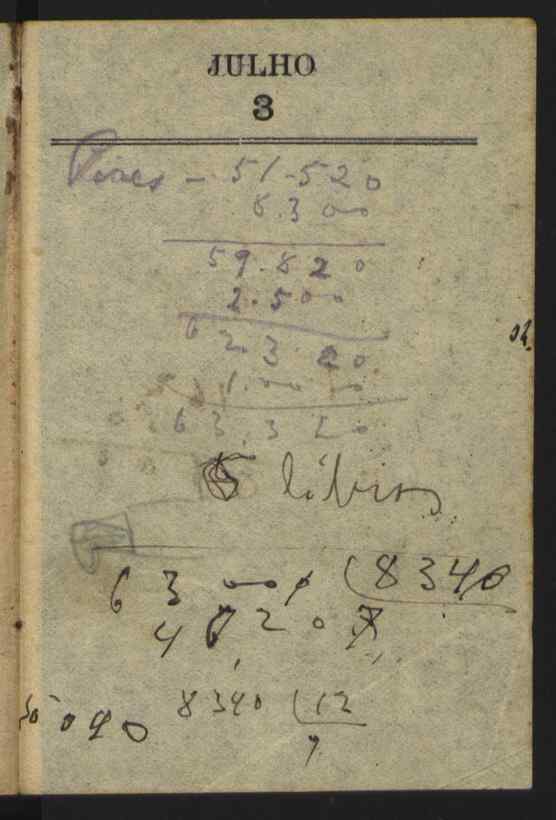 JULHO
3
Pires - 51-520
8.300
59.820
2.500
62.320
1.000
63.320
5 libras
63000 (8340
4620 7
8340 (12
7
040